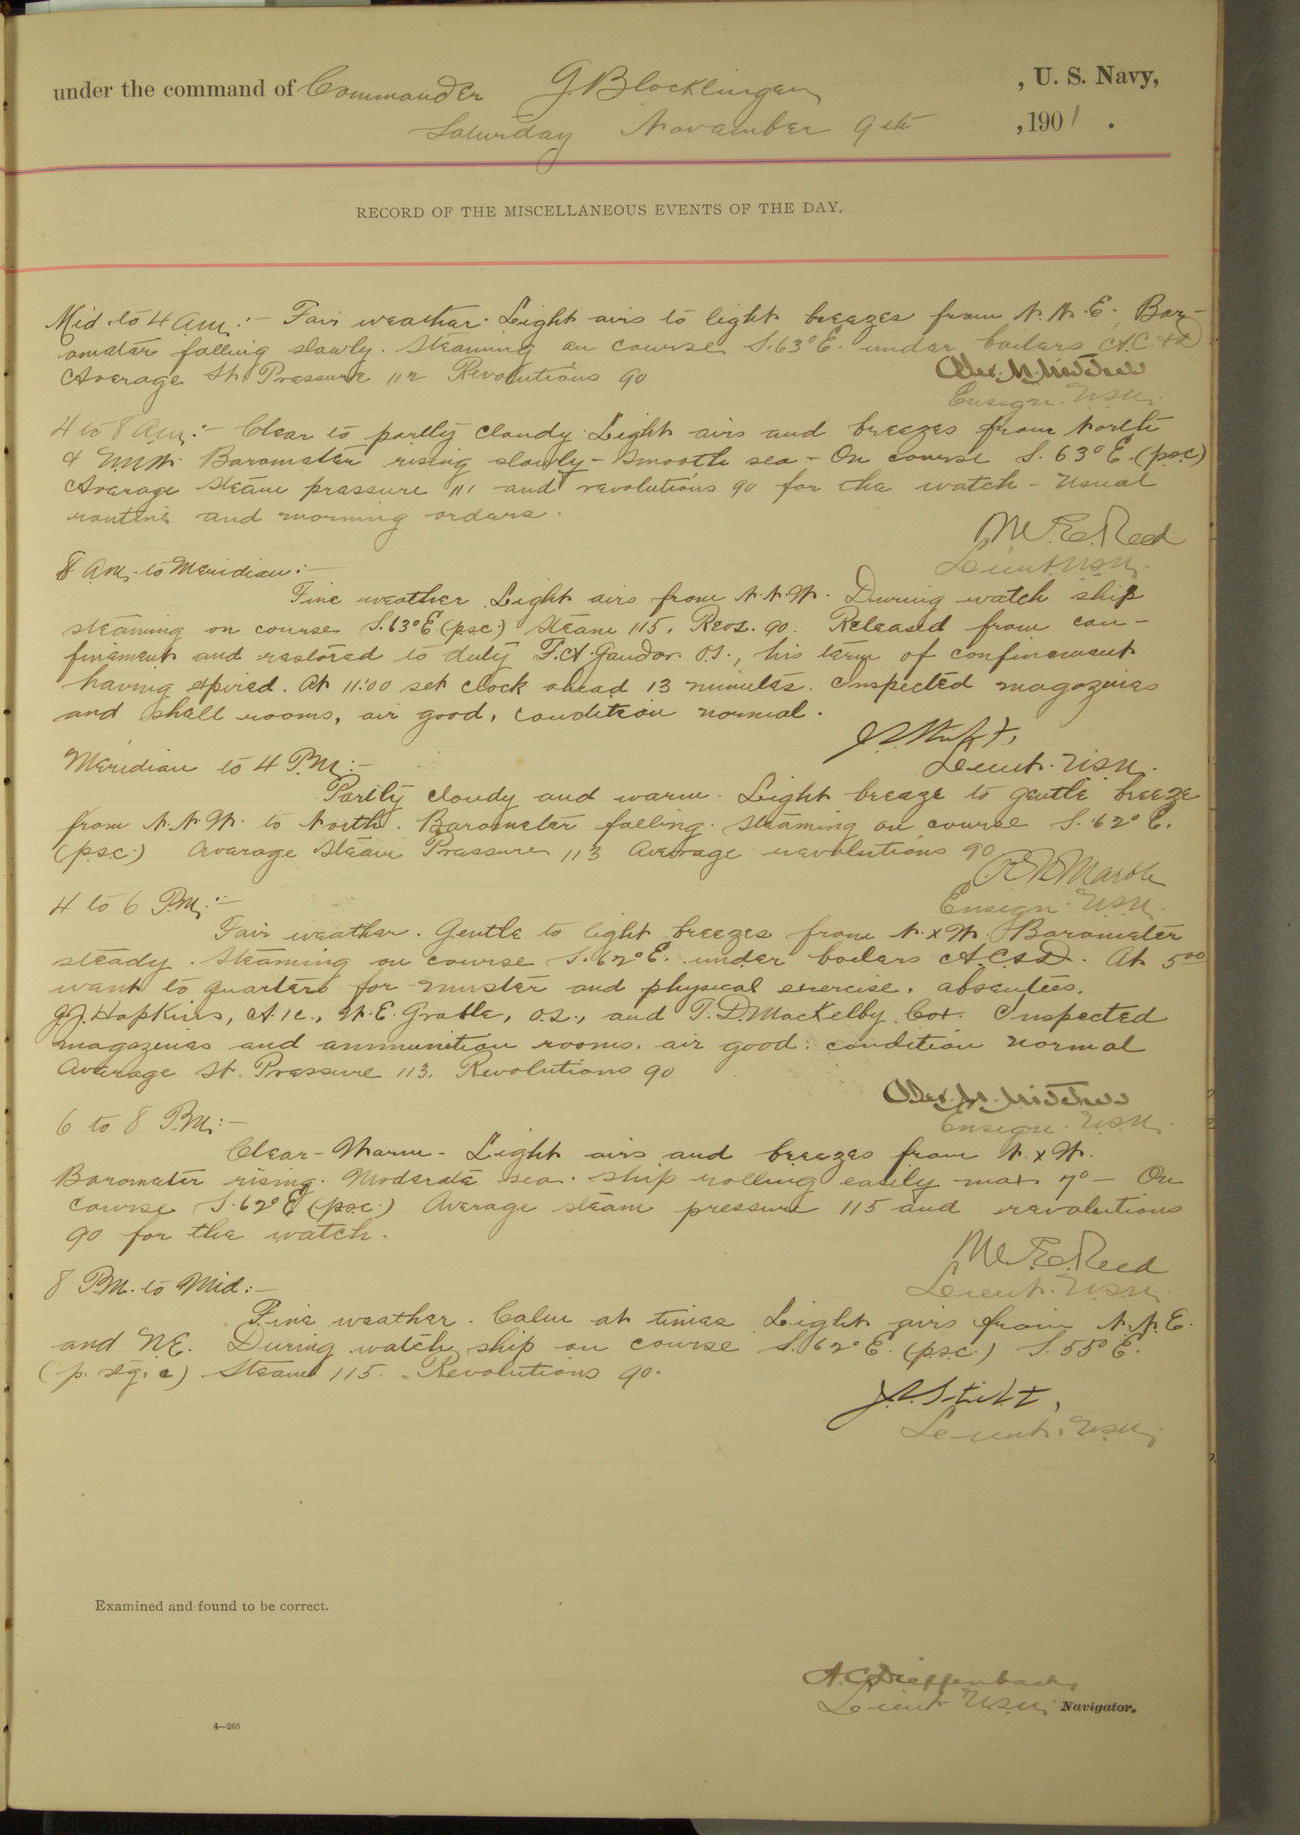 under the command of Commander G Blocklinger, U. S. Navy,
Saturday November 9th, 1901.
RECORD OF THE MISCELLANEOUS EVENTS OF THE DAY.
Mid. to 4 am:- Fair weather. Light airs to light breezes from N.N.E. Bar-
ometer falling slowly. Steaming on course S.63°E. under boilers A.C. & D
Average St. Pressure 112 Revolutions 90
Alex. N. Mitchell
Ensign. U.S.N.
4 to 8 am:- Clear to partly cloudy. Light airs and breezes from North
& N.N.W. Barometer rising slowly - Smooth sea - On course S. 63° E. (p.s.c)
Average steam pressure 111 and revolutions 90 for the watch - Usual
routine and morning orders.
M. E. Reed
Lieut. U.S.N.
8 am. to Meridian:-
Fine weather. Light airs from N.N.W. During watch ship
steaming on course S.63°E (psc.) Steam 115. Revs. 90. Released from con-
finement and restored to duty F.A. Gandor. O.S., his term of confinement
having expired. At 11:00 set clock ahead 13 minutes. Inspected magazines
and shell rooms, air good, condition normal.
Lieut. U.S.N.
Meridian to 4 P.M:-
Partly cloudy and warm. Light breeze to gentle breeze
from N.N.W. to North. Barometer falling. Steaming on course S. 62° E.
(p.s.c.) Average Steam Pressure 113 Average revolutions 90
Ensign. U.S.N.
4 to 6 P.M.:-
Fair weather. Gentle to light breezes from N. x W. Barometer
steady. Steaming on course S. 62° E. under boilers A.C. & D. At 5 00
went to quarters for muster and physical exercise, absentees,
J.J. Hopkins, W. E. Grable, O.S., and T. D. MacKelby Cox. Inspected
magazines and ammunition rooms. air good: condition normal
Average St. Pressure 113. Revolutions 90
Alex. N. Mitchell
Ensign. U.S.N.
6 to 8 P.M:-
Clear - Warm - Light airs and breezes from N. x W.
Barometer rising. Moderate sea. Ship rolling easily max 7° - On
course S. 62° E (psc.) Average steam pressure 115 and revolutions
90 for the watch.
M. E. Reed
Lieut. U.S.N.
8 P.M. to Mid:-
Fine weather. Calm at times Light airs from N.N.E.
and NE. During watch ship on course S. 62° E. (p.s.c.) S. 55° E.
(p. stg. c) Steam 115. Revolutions 90.
Lieut. U.S.N.
Examined and found to be correct.
A.C. Dieffenbach,
Lieut U.S.N. Navigator.
4—265